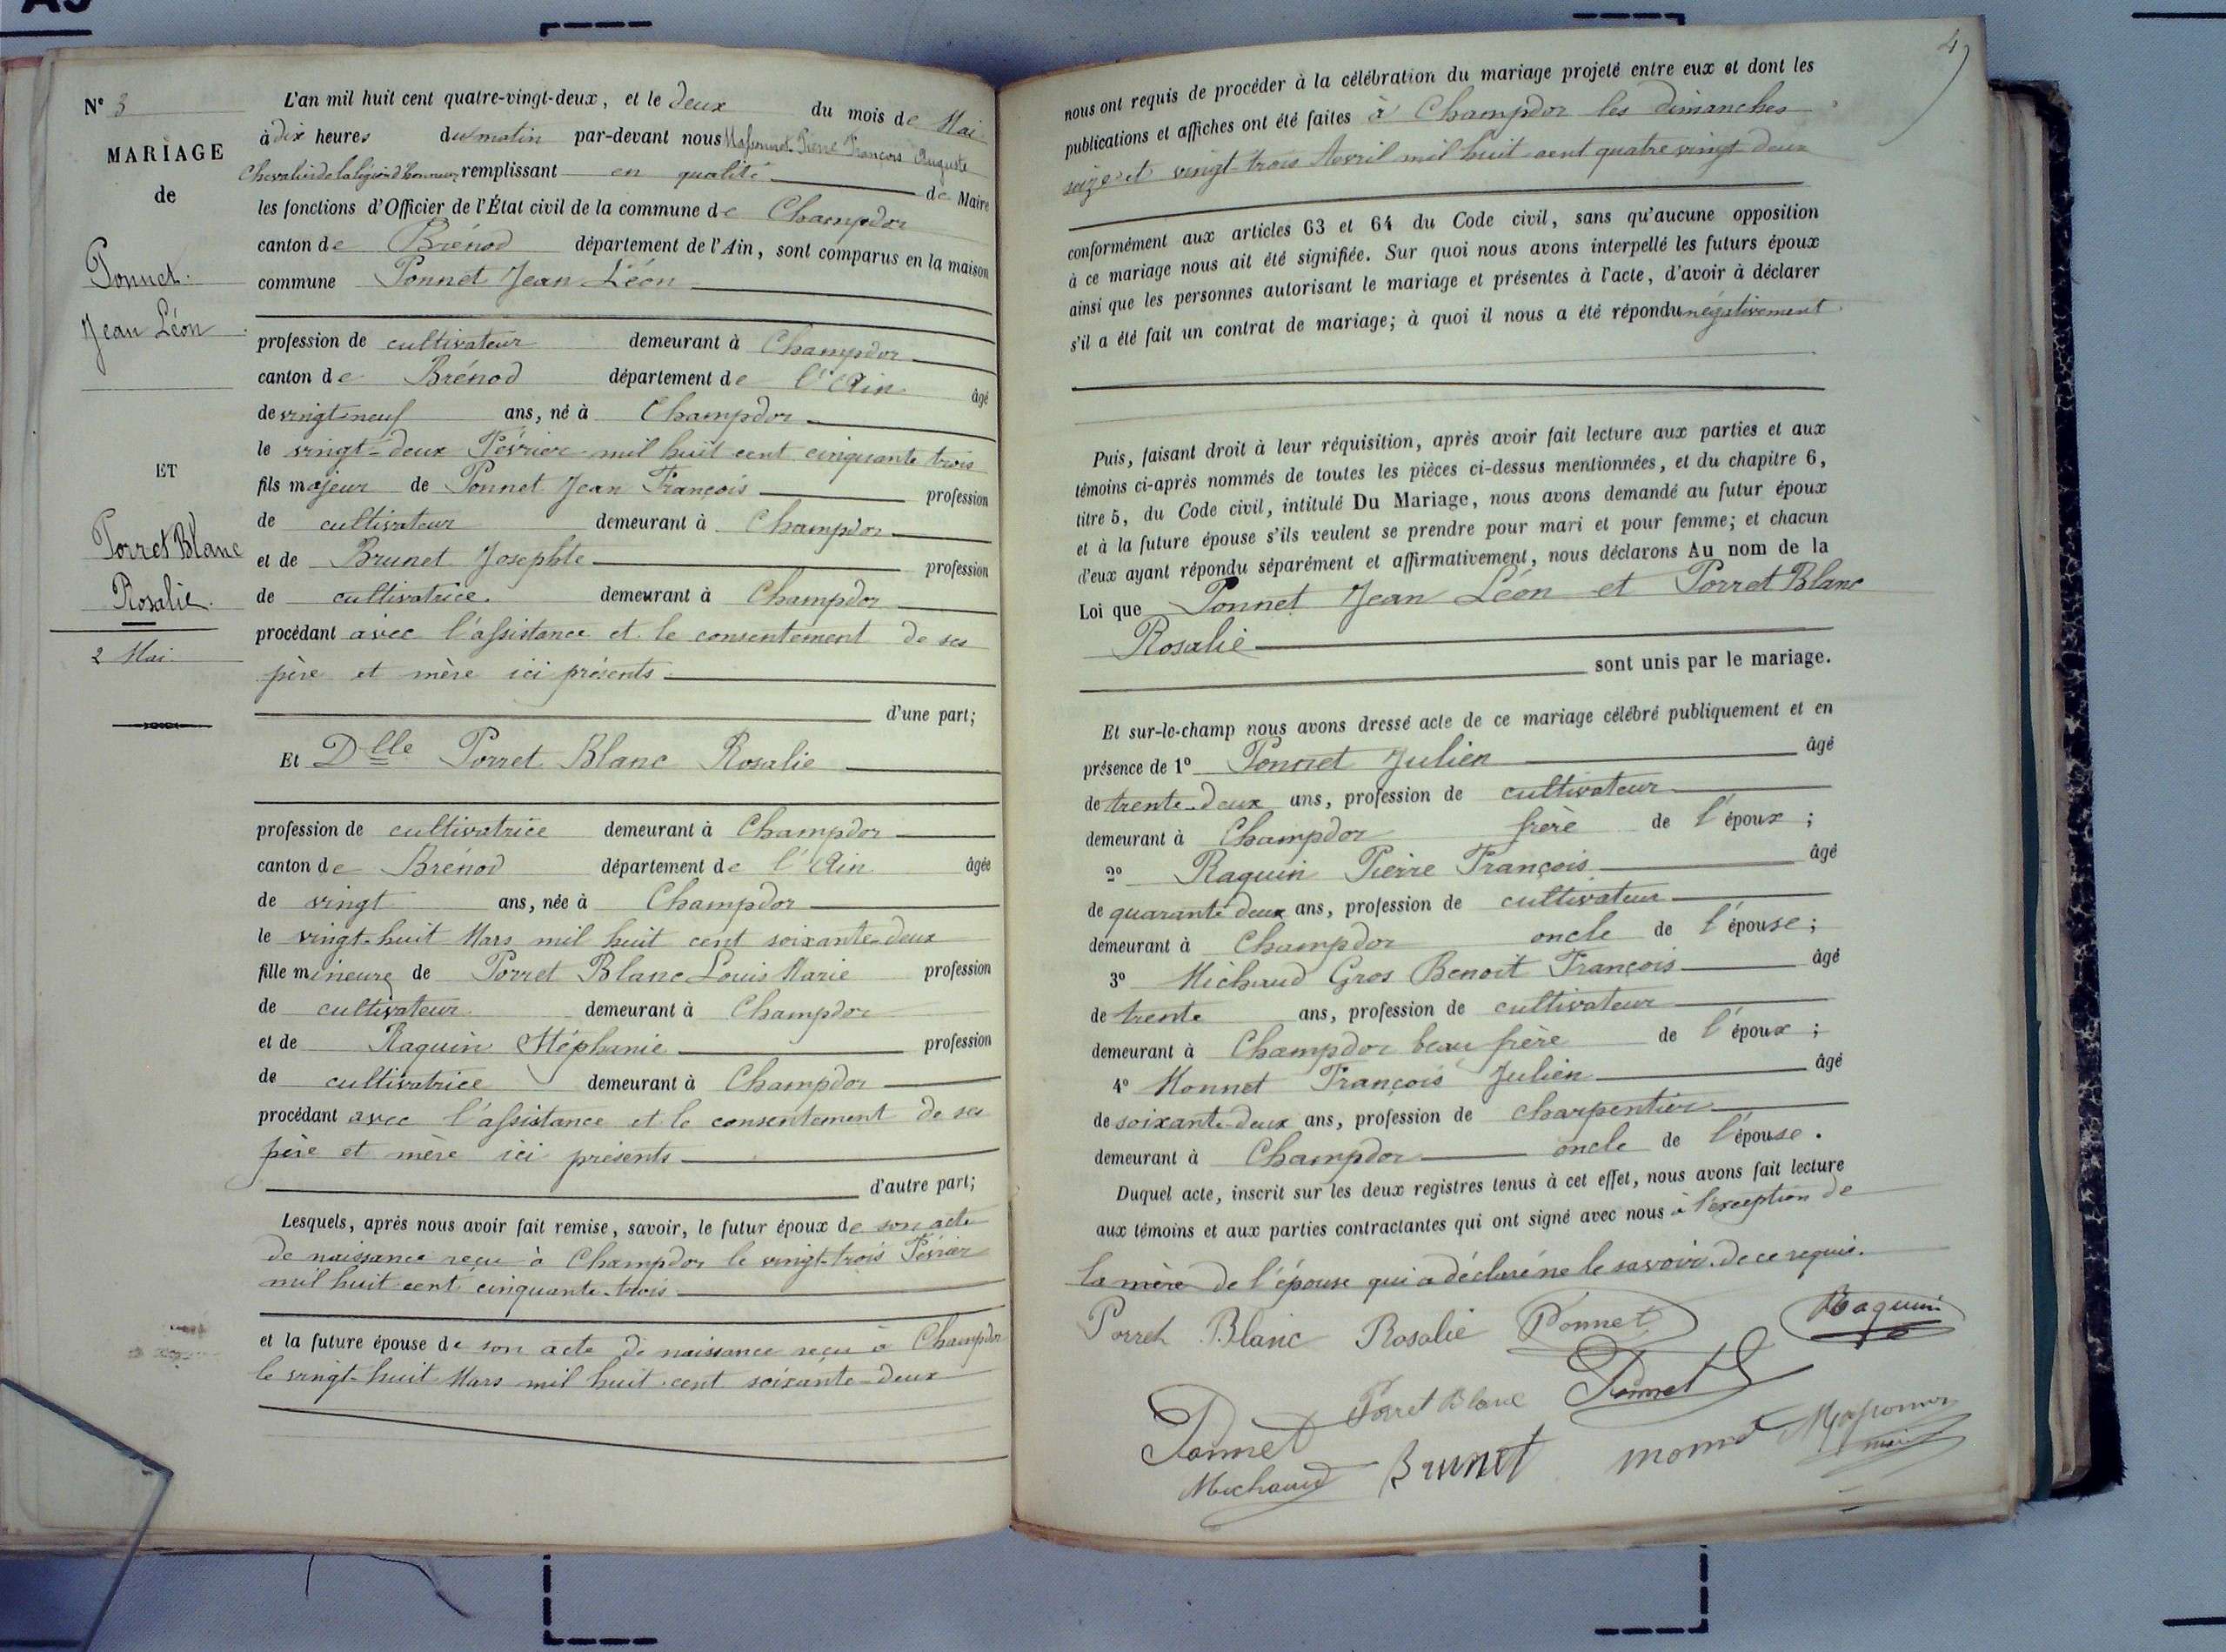 A3
N° 3
MARIAGE
de
Ponnet
Jean Léon
ET
Porret Blanc
Rosalie.
2 Mai
L'an mil huit cent quatre-vingt-deux, et le deux du mois de Mai
à dix heures du matin par-devant nous Massonnet Pierre François Auguste
Chevalier de la légion d'honneur remplissant en qualité de Maire
les fonctions d'Officier de l'État civil de la commune de Champdor
canton de Brénod département de l'Ain, sont comparus en la maison
commune Ponnet Jean Léon
profession de cultivateur demeurant à Champdor
canton de Brénod département de l'Ain âgé
de vingt-neuf ans, né à Champdor
le vingt-deux Février mil huit cent cinquante trois
fils majeur de Ponnet Jean François profession
de cultivateur demeurant à Champdor
et de Brunet Josephte profession
de cultivatrice. demeurant à Champdor
procédant avec l'assistance et le consentement de ses
père et mère ici présents
d'une part;
Et Dlle Porret Blanc Rosalie
profession de cultivatrice demeurant à Champdor
canton de Brénod département de l'Ain âgée
de vingt ans, née à Champdor
le vingt-huit Mars mil huit cent soixante-deux
fille mineure de Porret Blanc Louis Marie profession
de cultivateur demeurant à Champdor
et de Raquin Stéphanie profession
de cultivatrice demeurant à Champdor
procédant avec l'assistance et le consentement de ses
père et mère ici présents
d'autre part;
Lesquels, après nous avoir fait remise, savoir, le futur époux de son acte
de naissance reçu à Champdor le vingt-trois Février
mil huit cent cinquante-trois
et la future épouse de son acte de naissance reçu à Champdor
le vingt-huit Mars mil huit cent soixante-deux
4
nous ont requis de procéder à la célébration du mariage projeté entre eux et dont les
publications et affiches ont été faites à Champdor les dimanches
seize et vingt-trois Avril mil huit cent quatre vingt-deux
conformément aux articles 63 et 64 du Code civil, sans qu'aucune opposition
à ce mariage nous ait été signifiée. Sur quoi nous avons interpellé les futurs époux
ainsi que les personnes autorisant le mariage et présentes à l'acte, d'avoir à déclarer
s'il a été fait un contrat de mariage; à quoi il nous a été répondu négativement
Puis, faisant droit à leur réquisition, après avoir fait lecture aux parties et aux
témoins ci-après nommés de toutes les pièces ci-dessus mentionnées, et du chapitre 6,
titre 5, du Code civil, intitulé Du Mariage, nous avons demandé au futur époux
et à la future épouse s'ils veulent se prendre pour mari et pour femme; et chacun
d'eux ayant répondu séparément et affirmativement, nous déclarons Au nom de la
Loi que Ponnet Jean Léon et Porret Blanc
Rosalie
sont unis par le mariage.
Et sur-le-champ nous avons dressé acte de ce mariage célébré publiquement et en
présence de 1° Ponnet Julien âgé
de trente-deux ans, profession de cultivateur
demeurant à Champdor frère de l'époux;
2° Raquin Pierre François âgé
de quarante deux ans, profession de cultivateur
demeurant à Champdor oncle de l'épouse;
3° Michaud Gros Benoit François âgé
de trente ans, profession de cultivateur
demeurant à Champdor beau frère de l'époux;
4° Monnet François Julien âgé
de soixante-deux ans, profession de charpentier
demeurant à Champdor oncle de l'épouse.
Duquel acte, inscrit sur les deux registres tenus à cet effet, nous avons fait lecture
aux témoins et aux parties contractantes qui ont signé avec nous à l'exception de
la mère de l'épouse qui a déclaré ne le savoir de ce requis.
Porret Blanc Rosalie Ponnet Raquin
Porret Blanc Ponnet
Ponnet Monnet Massonnet
Michaud Brunet maire